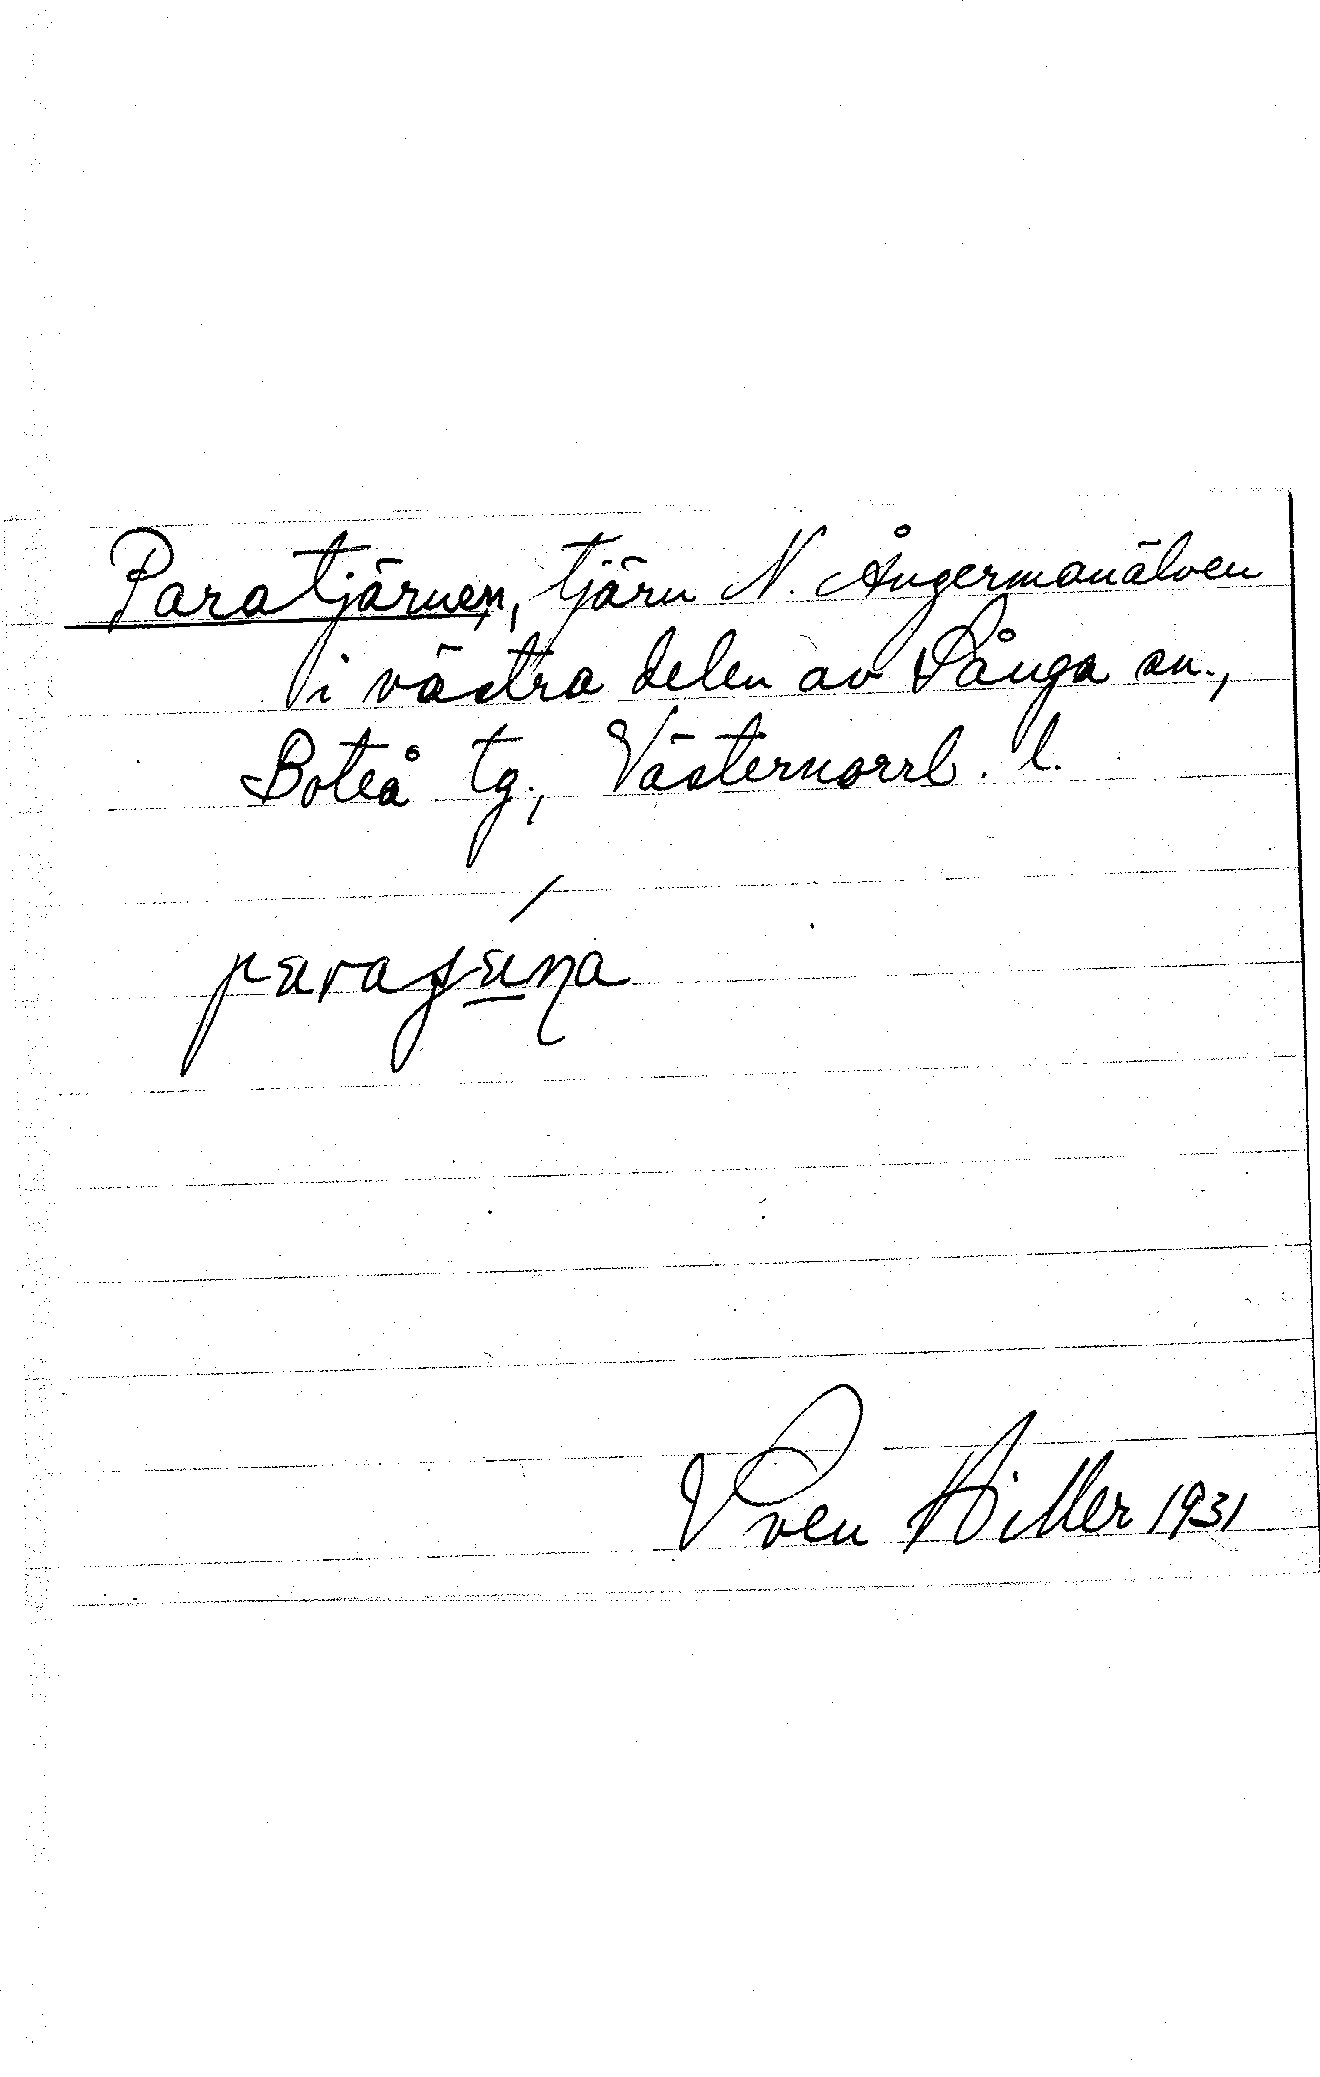 Paratjärnen, tjärn N. Ångermanälven
i västra delen av Sånga sn.,
Boteå tg., Västernorrl. l.
Sven Hiller 1931